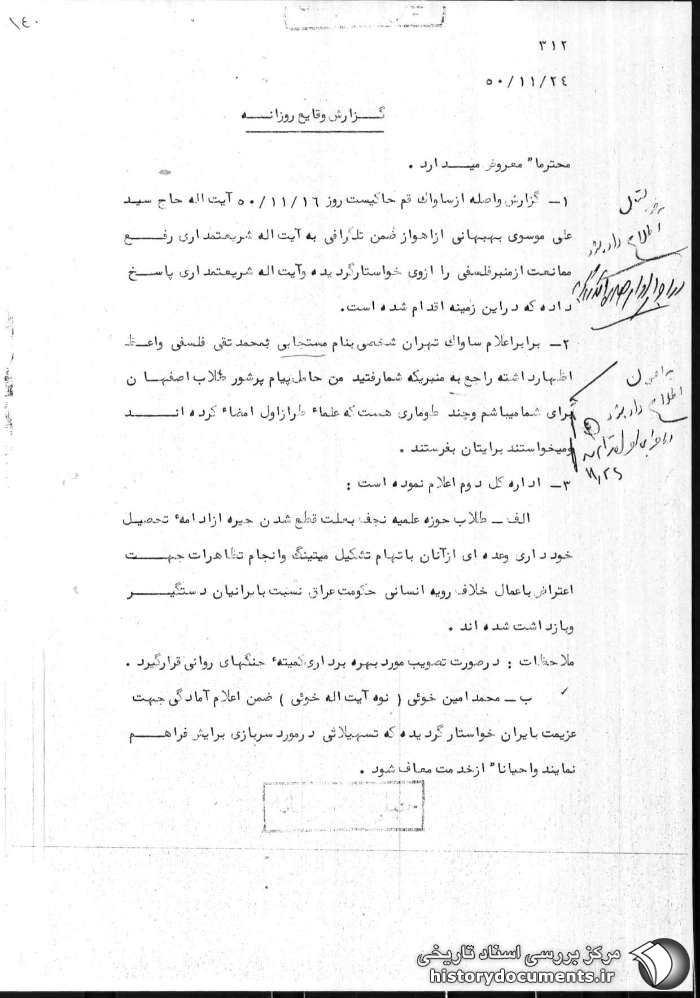 ١٤٠
٣١٢
٥٠/١١/٢٤
گـزارش وقایع روزانـــه
محترما" معروض میـــدارد .
۱ــ گزارش واصله ازساواك قم حاکیست روز ٥٠/١١/١٦ آیت اله حاج سید
علی موسوی بهبهانی ازاهواز ضمن تلگرافی به آیت اله شریعتمداری رفـــع
ممانعت ازمنبرفلسفی را ازوی خواستارگردیده وآیت اله شریعتمداری پاسخ
داده که دراین زمینه اقدام شده است.
۲ــ برابراعلام ساواك تهران شخصی بنام مستجابی بمحمدتقی فلسفی واعـظ
اظهارداشته راجع به منبریکه شمارفتید من حامل پیام پرشور طلاب اصفهــان
برای شمامیباشم وچند طوماری هست که علماء طرازاول امضاء کرده انــــد
ومیخواستند برایتان بفرستند .
۳ــ اداره کل دوم اعلام نموده است :
الف ــ طلاب حوزه علمیه نجف بعلت قطع شدن جیره ازادامهٔ تحصیل
خودداری وعده ای ازآنان باتهام تشکیل میتینگ وانجام تظاهرات جهـــت
اعتراض باعمال خلاف رویه انسانی حکومت عراق نسبت بایرانیان دستگیـــر
وبازداشت شده اند .
ملاحظات : درصورت تصویب مورد بهره برداری کمیتهٔ جنگهای روانی قرارگیرد .
ب ــ محمدامین خوئی ( نوه آیت اله خوئی ) ضمن اعلام آمادگی جهت
عزیمت بایران خواستارگردیده که تسهیلاتی درمورد سربازی برایش فراهـــم
نمایند واحیانا" ازخدمت معاف شود .
اطلاع داده شود
اطلاع داده شود
۱۱/۲۵
مرکز بررسی اسناد تاریخی
historydocuments.ir